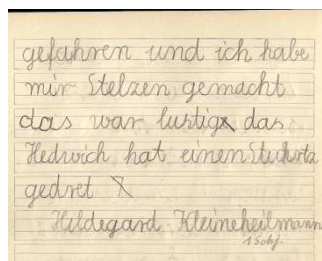 gefahren und ich habe
mir Stelzen gemacht
das war lustig das
Hedwich hat einen
gedret
Hildegard Kleineheilmann
1 Schj.